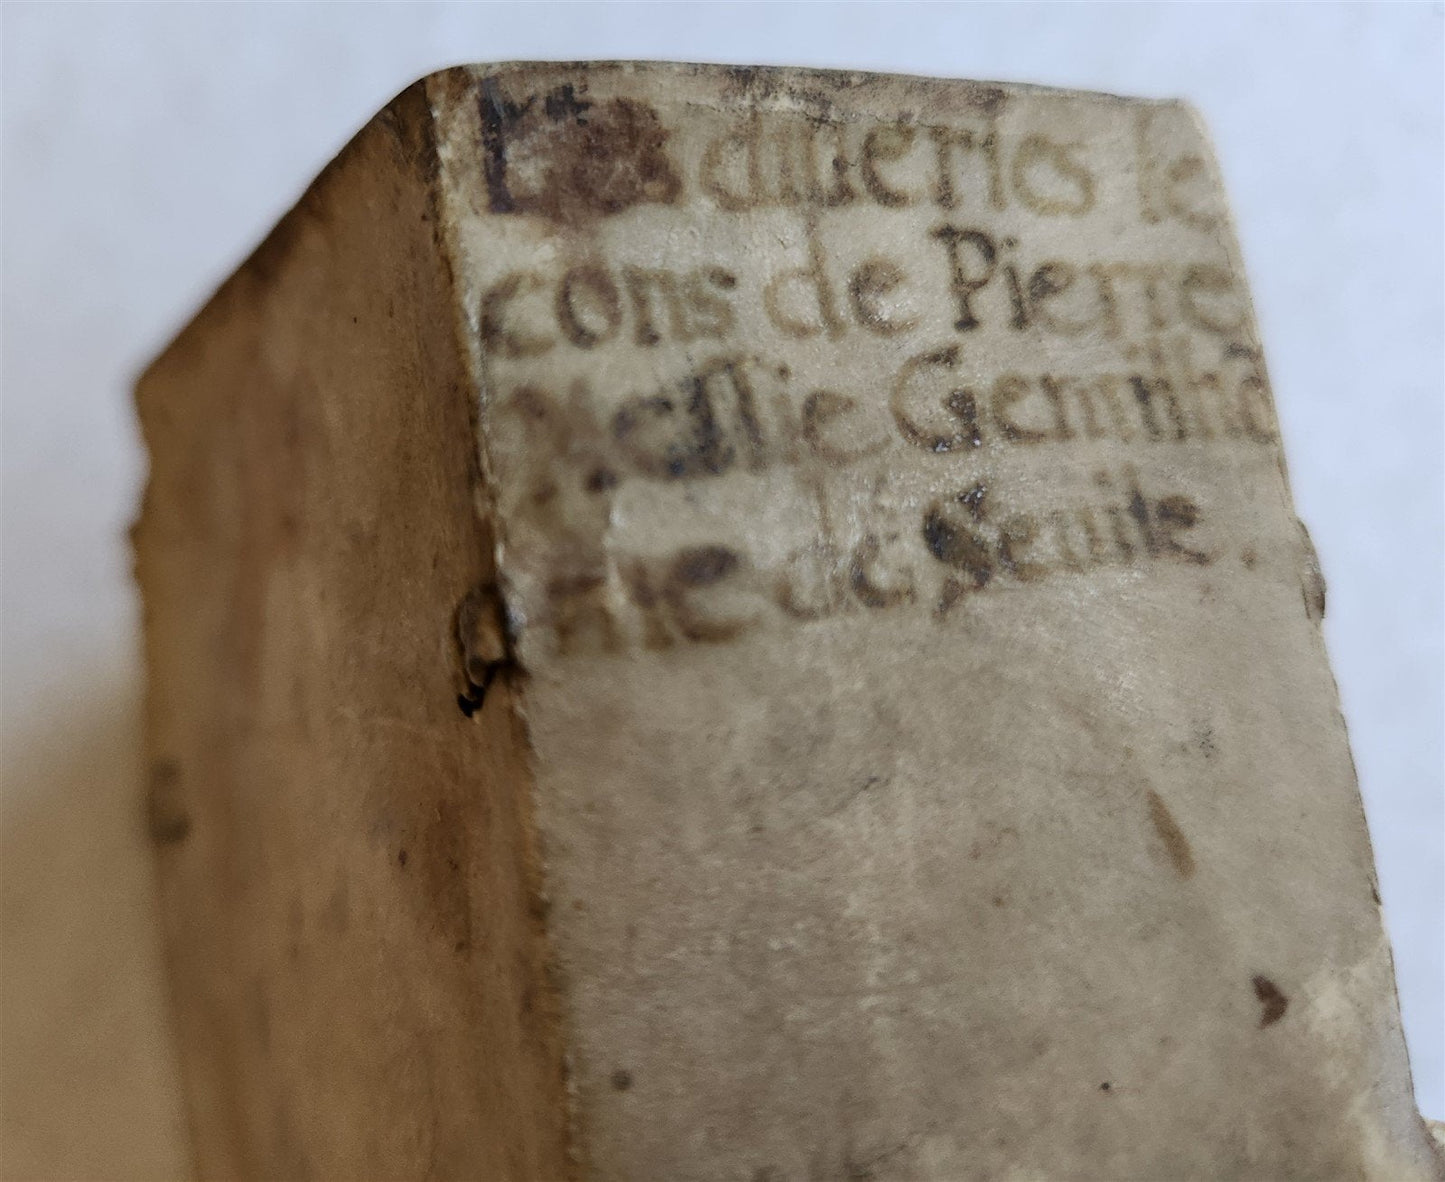 Les diuerses le
cons de Pierre
Messie Gentilhõ
me de Seuile.